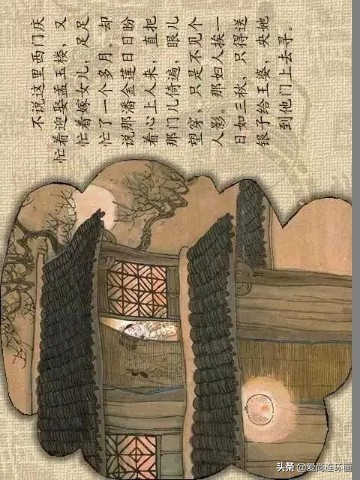 不说这里西门庆
忙着迎娶孟玉楼，又
忙着嫁女儿，足足
忙了一个多月。却
说那潘金莲日日盼
着心上人来，直把
那门儿倚遍，眼儿
望穿，只是不见个
人影。那妇人挨一
日如三秋，只得送
银子给王婆，央她
到他门上去寻。
头条 @爱尚连环画